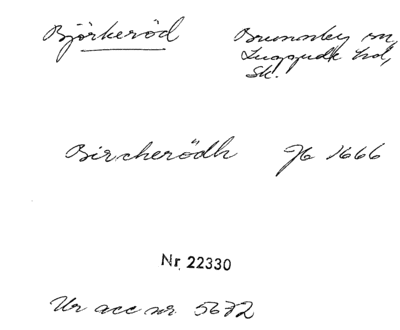 Björkeröd Brunnby sn,
Luggude hd,
Sk.
Bircherödh Jb 1666
Nr 22330
Ur acc nr. 5672